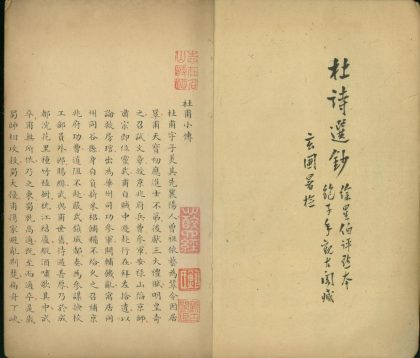 杜詩選鈔
徐星伯評點本
鮑子年觀古閣藏
杜甫小傳
杜甫字子美其先襄陽人曾祖依藝為鞏令因居
鞏甫天寶初應進士不第後獻三大禮賦明皇奇
之召試文章授京兆府兵曹參軍安祿山陷京師
肅宗即位靈武甫自賊中遁赴行在拜左拾遺以
論救房琯出為華州司功參軍關輔饑亂寓居同
州同谷縣身自負薪采梠餔糒不給久之召補京
兆府功曹道阻不赴嚴武鎮成都奏為參謀檢校
工部員外郎賜緋武與甫世舊待遇甚厚乃於成
都浣花里種竹植樹枕江結廬縱酒嘯歌其中武
卒甫無所依乃之東蜀就高適既至而適卒是歲
蜀帥相攻殺蜀大擾甫攜家避亂荊楚扁舟下峽